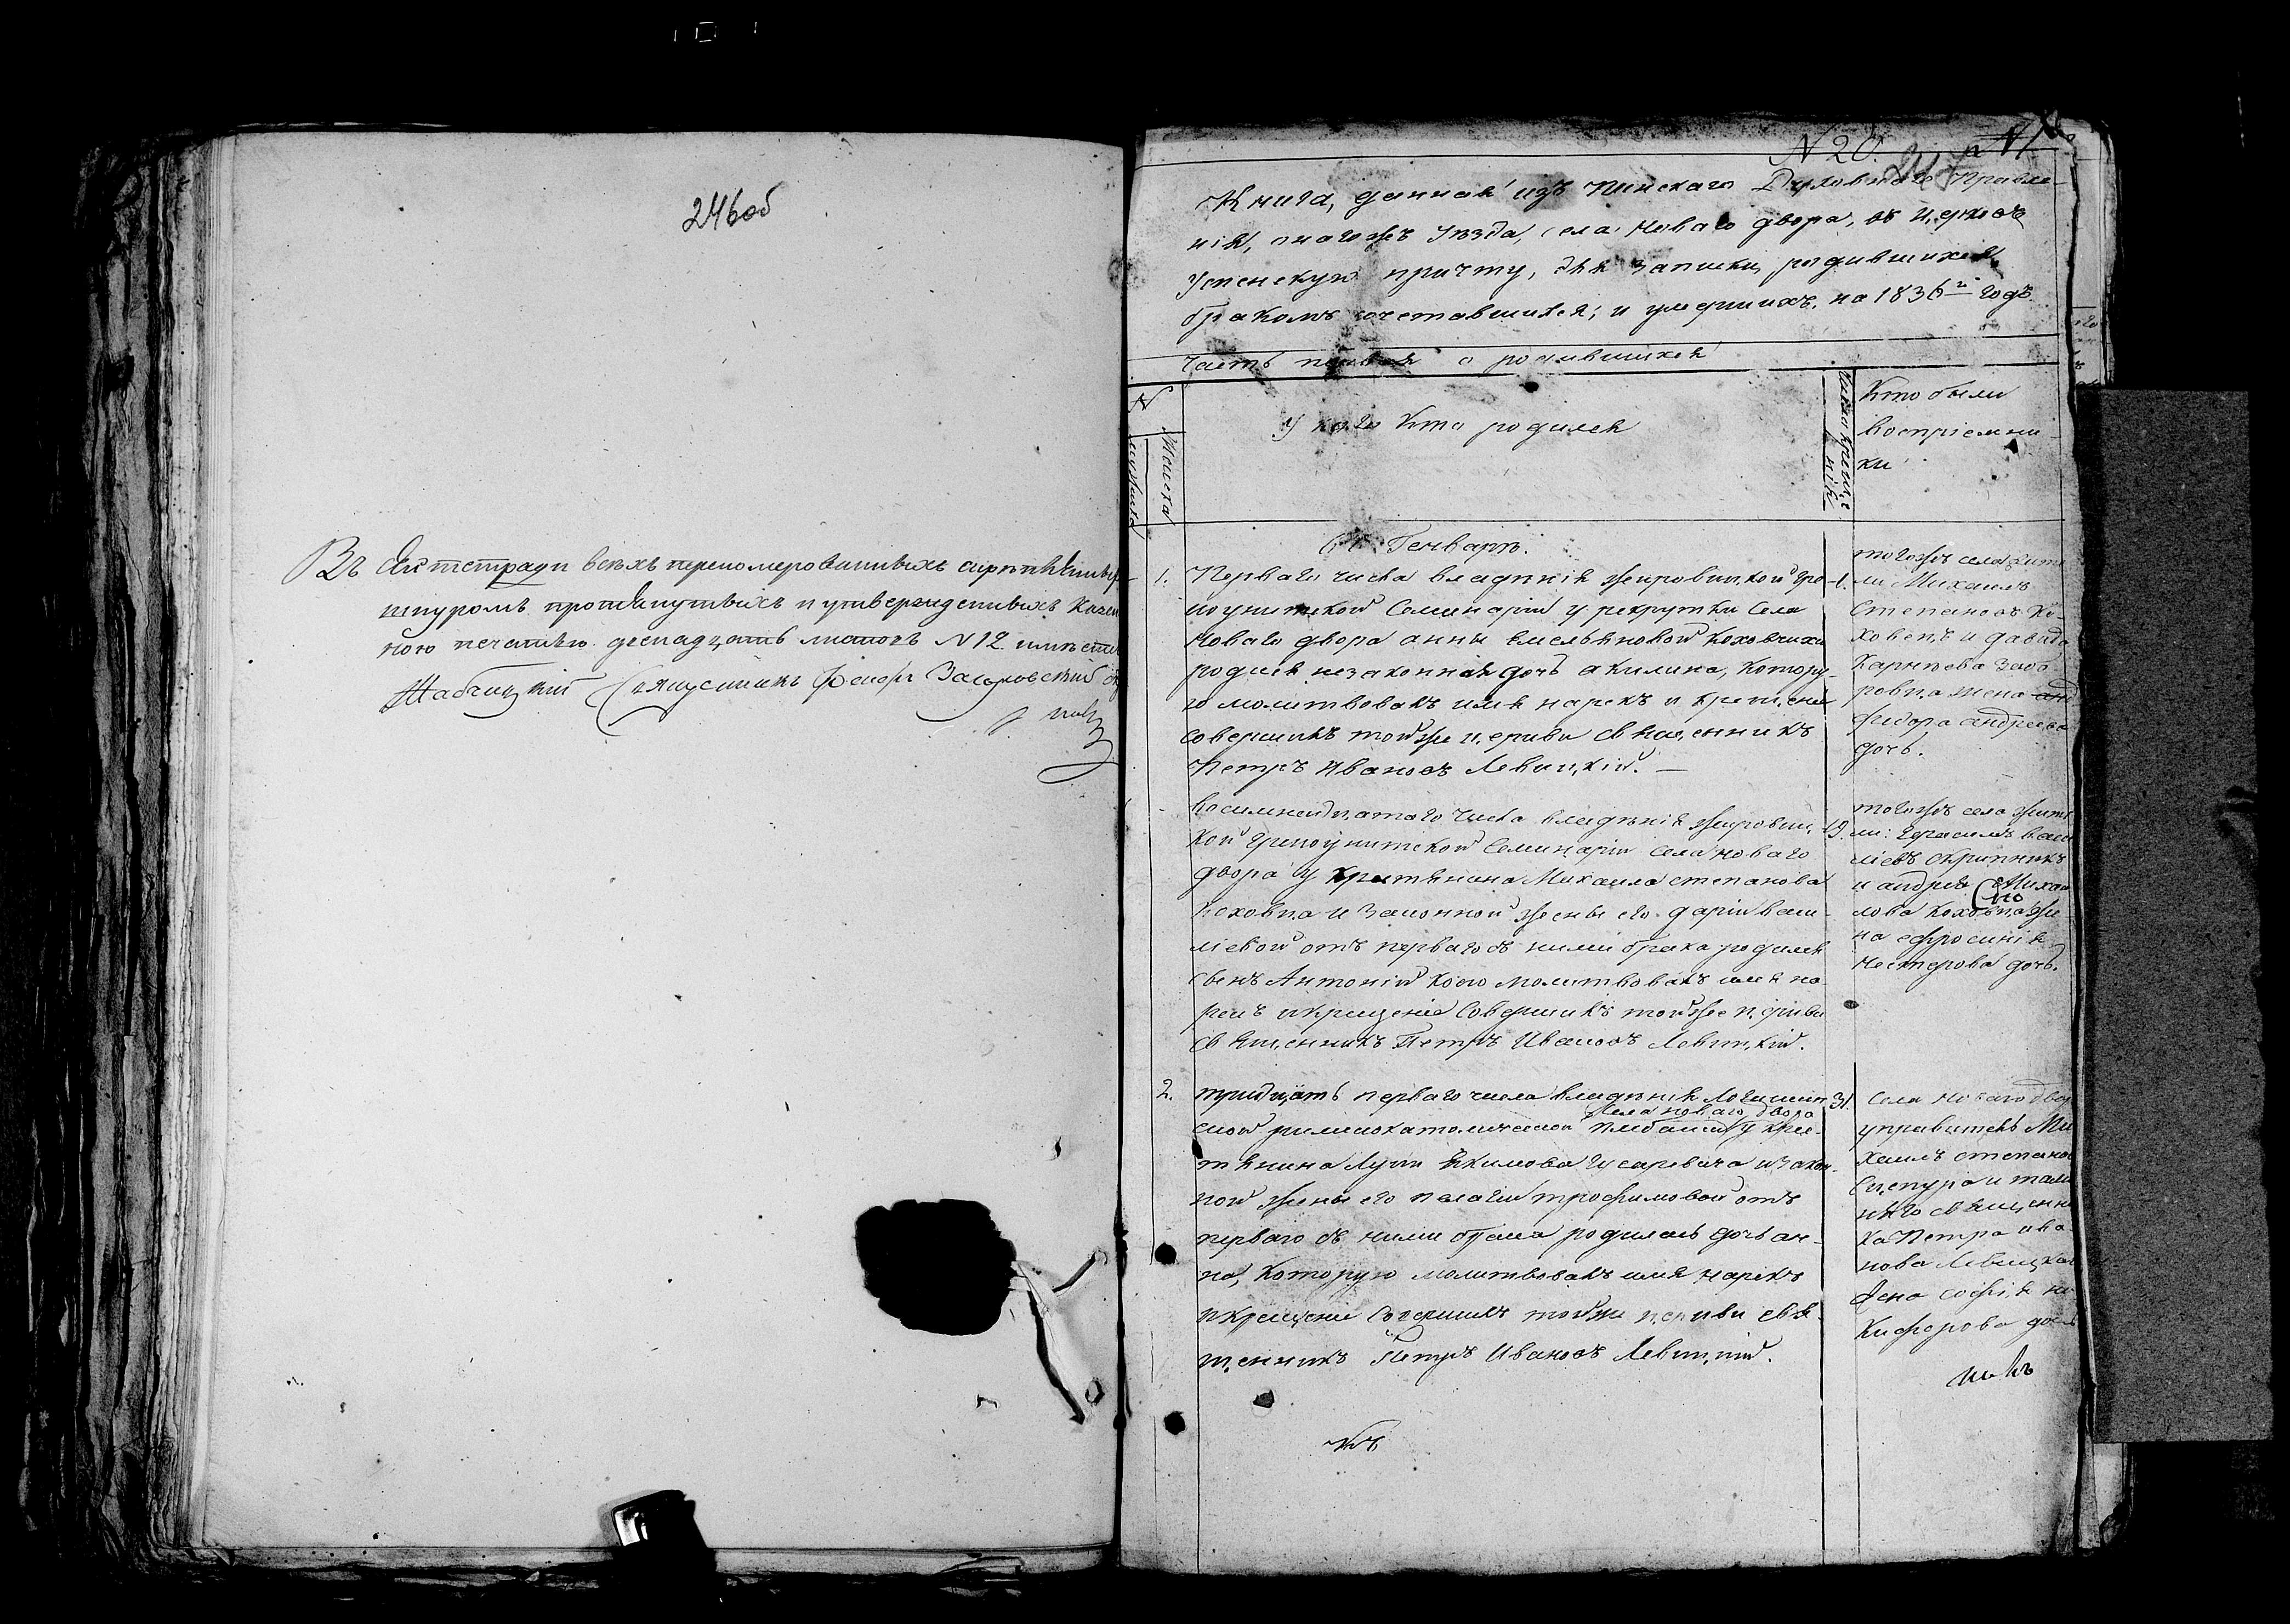 246об
Въ сей тетради всѣхъ переномерованныхъ скрѣпленныхъ
шнуромъ протянутыхъ и утвержденныхъ казен
ною печатью двенадцать листовъ N 12. имѣетъ
Священникъ
N 20.
Книга, данная изъ Пинскаго Духовнаго Правле-
нія, оного жъ уѣзда, села Новаго двора, въ церковь
Успенскую причту, для записки родившихся,
бракомъ сочетавшихся, и умершихъ. на 1836й годъ.
Часть первая о родившихся
N
мужеска
Женска
У кого кто родился
Число креще
нія
Кто были
воспріемни
ки
Генваря.
1. Перваго числа владѣнія Жировицкой гре-
коунитской Семинаріи у рекрутки села
Новаго двора анны Емельяновой Коховчихи
родися незаконная дочь акилина, котору-
ю молитвовалъ имя нарекъ и крещеніе
совершилъ тойже церкви священникъ
Петръ Ивановъ Левицкій.
1.
тогожъ села жите
ли Михаилъ
Степановъ Ко
ховецъ и давида
Карнѣева
жена
федора андреева
дочь.
восимнадцатаго числа владѣнія Жирович-
кой грекоунитской Семинаріи села новаго
двора у крестянина Михаила степанова
Коховца и законной жены его даріи васи-
ліевой отъ перваго съ ними брака родился
сынъ Антоній коего молитвовалъ имя на
рекъ и крещеніе совершилъ тойже церкви
священникъ Петръ Ивановъ Левицкій.
19.
тогожъ села жите
ли: Герасимъ васи
ліевъ скрипникъ
и андрея Михаи
лова Коховца же
на ефросинія
Нестерова дочь.
2. тридцать перваго числа владѣнія Логишин
села новаго двора
ской римскокатолической плебаніи у крес-
тянина Луки Якимова Гусаревича и закон-
ной жены его пелагіи трофимовой отъ
перваго съ ними брака родилась дочь ан-
на, которую молитвовалъ имя нарекъ
и крещеніе совершилъ тойже церкви свя-
щенникъ Петръ Ивановъ Левицкій.
31.
села Новаго двора
управитель Ми
хаилъ степанов
Сцепура и тамо
шняго священни
ка Петра ива
нова Левицкаго
жена софія ни
кифорова дочь